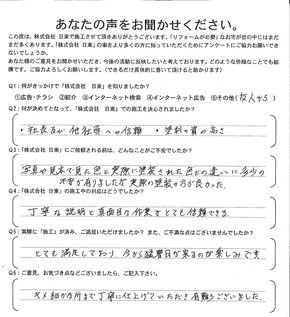 あなたの声をお聞かせください。
この度は、株式会社 日東で施工させて頂きありがとうございます。『リフォームが必要』なお宅が世の中にはまだ
まだ多くあります。『株式会社 日東』の事をより多くの方に知っていただくためにアンケートにご協力お願いでき
ないでしょうか。
あなた様のご意見をお聞かせいただき、今後の活動に反映したいと考えております。どのような些細なことでも結
構です。ご協力よろしくお願いします。（できるだけ具体的に書いて頂けると助かります）
Q1：何がきっかけで『株式会社 日東』を知りましたか？
①広告・チラシ ②紹介 ③インターネット検索 ④インターネット広告 ⑤その他（友人から）
Q2：何が決めてとなって、『株式会社 日東』での施工を決めましたか？
・社長及び他社員への信頼 ・塗料の質の高さ
Q3：『株式会社 日東』にご依頼される前は、どんなことがご不安でしたか？
写真や見本で見た色と実際に塗装された色との違いに多少の
不安が有りましたが実際の塗装の方が良かった。
Q4：『株式会社 日東』の施工中の対応はどうでしたか？
丁寧な説明と真面目な作業がとても信頼できる。
Q5：実際に『施工』が済み、ご満足いただけましたか？ また、ご不満な点はございませんでしたか？
とても満足しており、今から猛暑日が来るのが楽しみです
Q6：ご意見、お気づき点などございましたら、ご記入下さい。
キメ細かな所まで丁寧に仕上げていただき有難うございました。